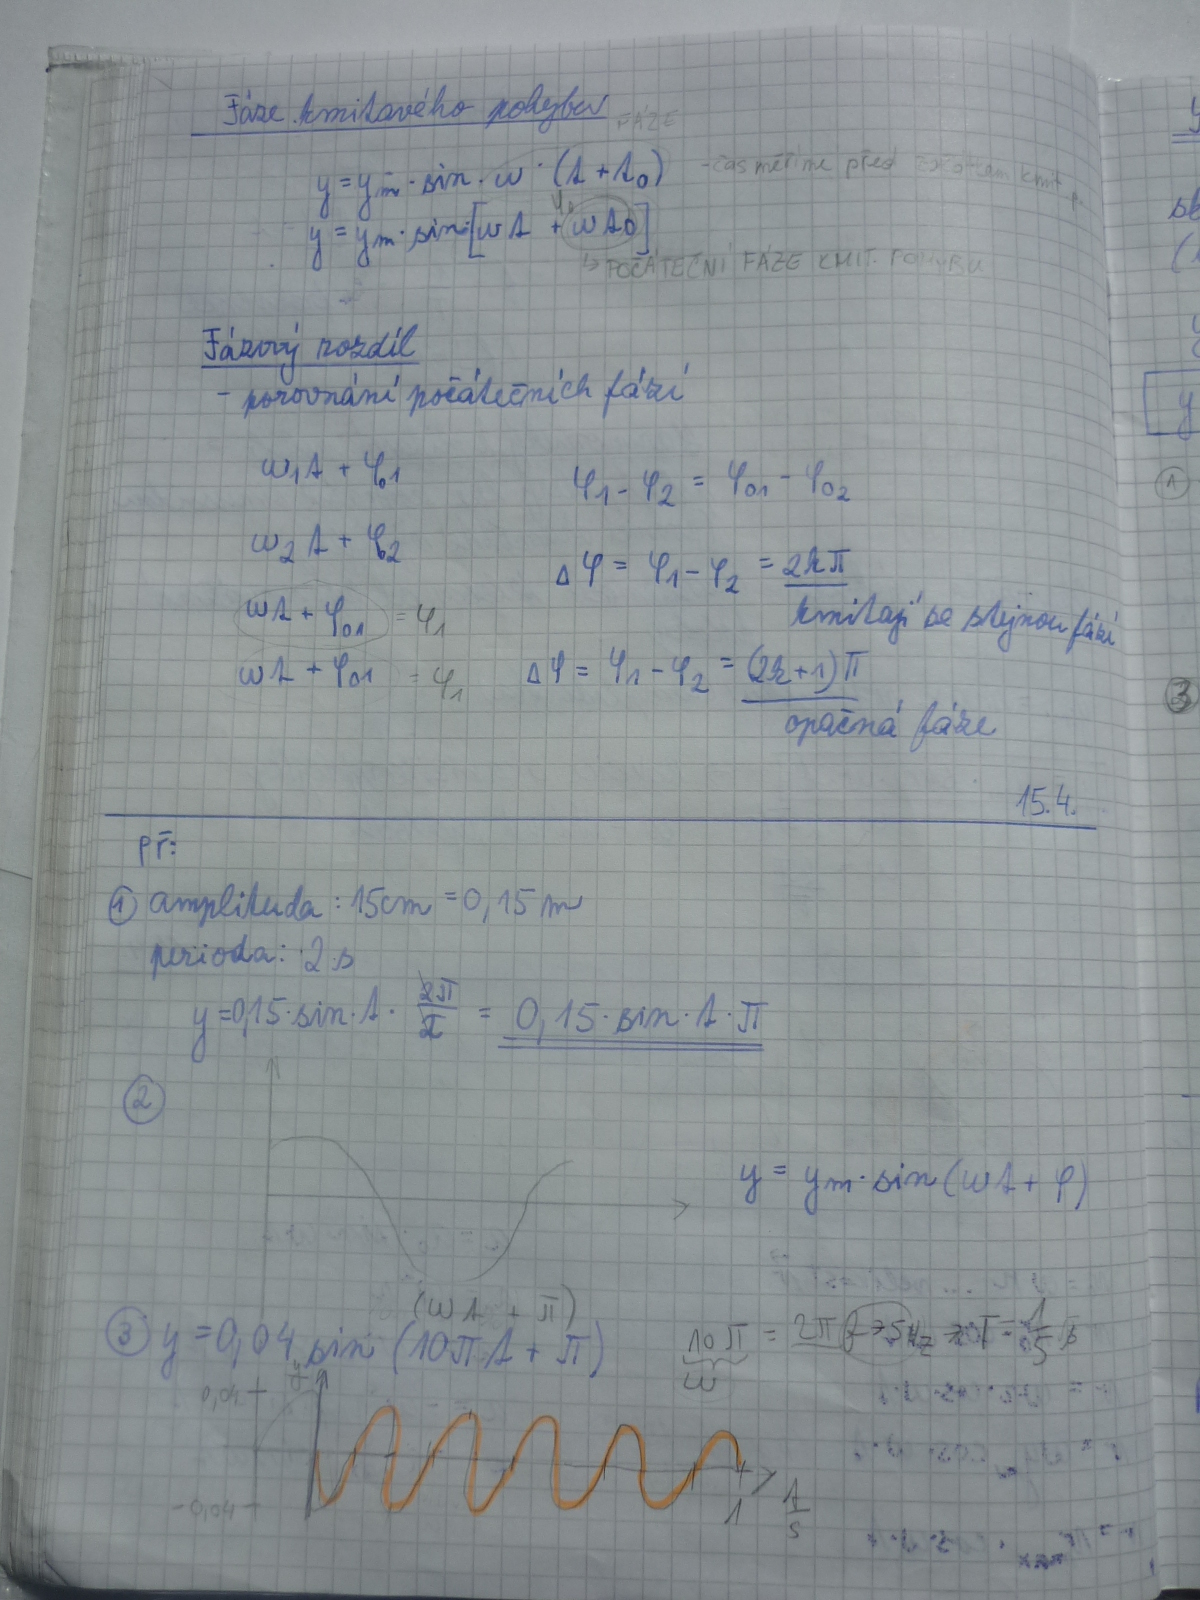 Fáze kmitavého pohybu
FÁZE
y = ym · sin · ω · (t + t0) - čas měříme před začátkem kmit. p.
φ0
y = ym · sin · [ωt + ωt0]
↳ POČÁTEČNÍ FÁZE KMIT. POHYBU
Fázový rozdíl
- porovnání počátečních fází
ω1t + φ01
φ1 - φ2 = φ01 - φ02
ω2t + φ2
Δφ = φ1 - φ2 = 2kπ
kmitají se stejnou fází
ωt + φ01 = φ1
ωt + φ01 = φ1
Δφ = φ1 - φ2 = (2k+1)π
opačná fáze
15.4.
př:
① amplituda: 15cm = 0,15 m
perioda: 2 s
y = 0,15 · sin · t · 2π/2 = 0,15 · sin · t · π
②
y = ym · sin (ωt + φ)
(ωt + π)
③ y = 0,04 sin (10πt + π)
10π = 2π f → 5Hz → T = 1/5 s
ω
y
0,04
-0,04
1
t/s